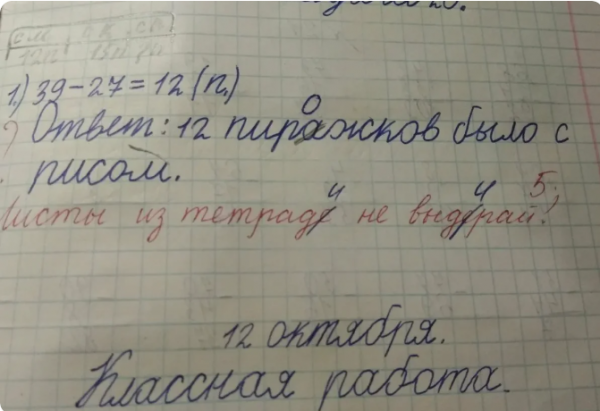 1.) 39-27=12 (п.)
Ответ: 12 пирожков было с
рисом.
Листы из тетради не выдирай! 5.
12 октября.
Классная работа.